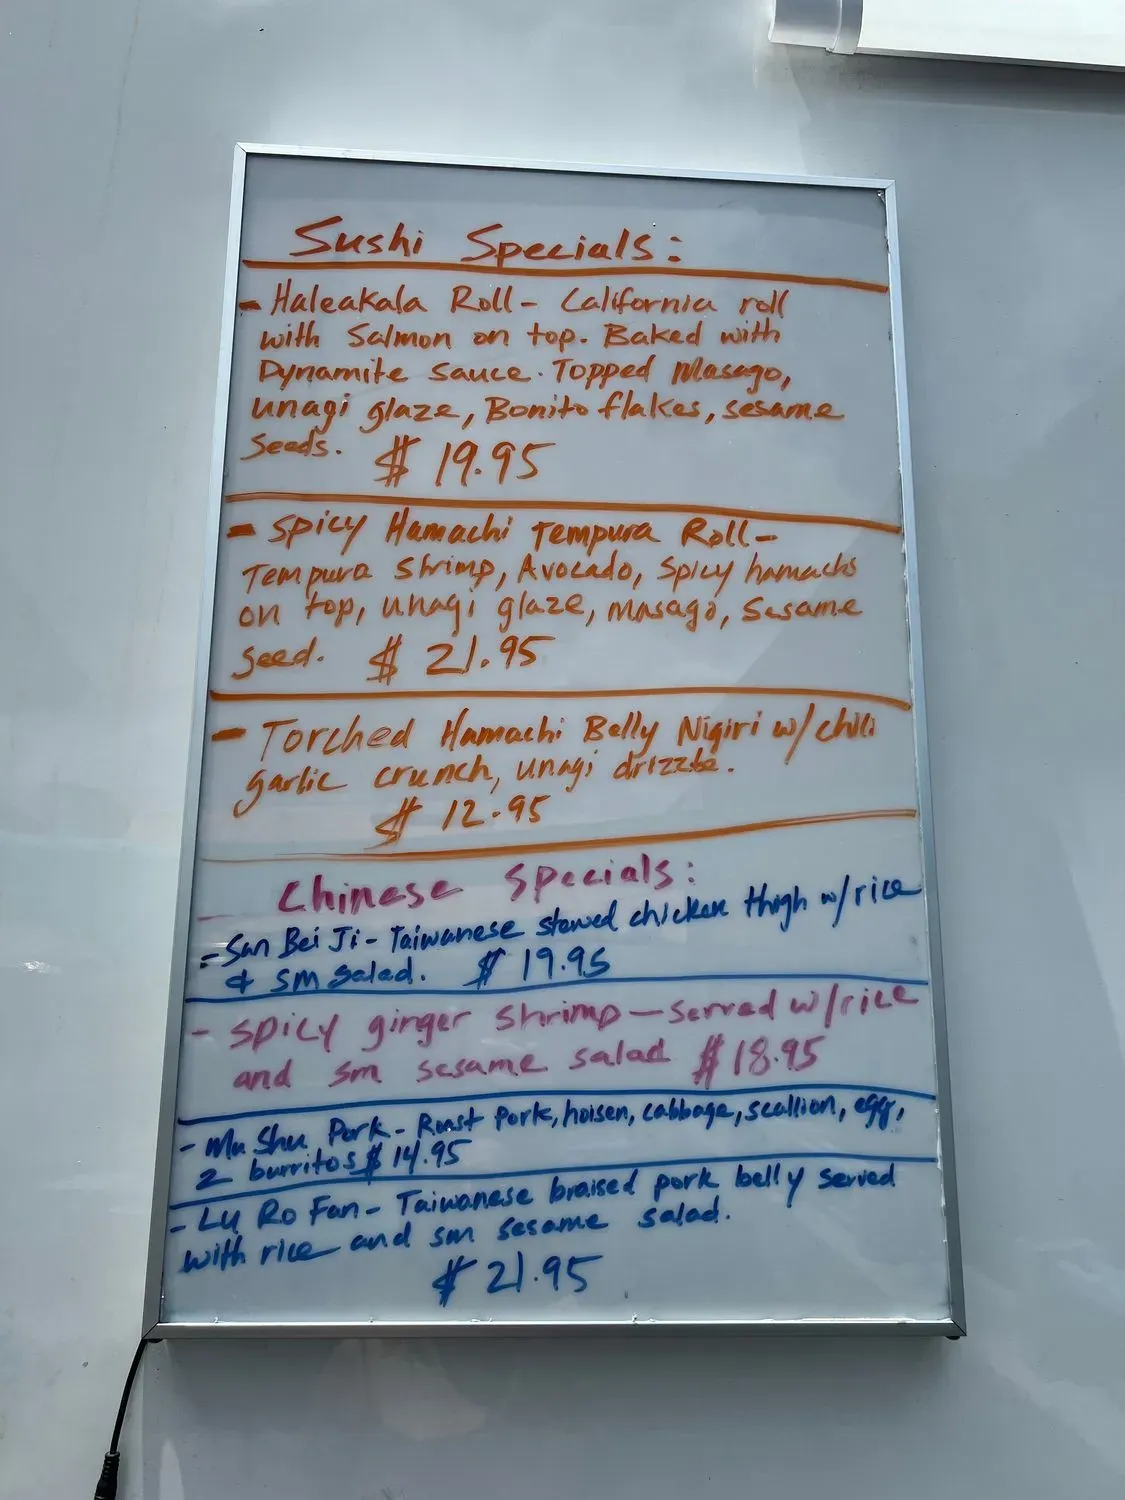 Sushi Specials:
- Haleakala Roll - California roll
with Salmon on top. Baked with
Dynamite sauce. Topped Masago,
unagi glaze, Bonito flakes, sesame
seeds. $ 19.95
- Spicy Hamachi Tempura Roll -
Tempura shrimp, Avocado, spicy hamachi
on top, unagi glaze, masago, sesame
seed. $ 21.95
- Torched Hamachi Belly Nigiri w/ chili
garlic crunch, unagi drizzle.
$ 12.95
Chinese Specials:
- San Bei Ji - Taiwanese stewed chicken thigh w/ rice
& sm salad. $ 19.95
- spicy ginger shrimp - served w/ rice
and sm sesame salad $ 18.95
- Mu Shu Pork - Roast Pork, hoisen, cabbage, scallion, egg,
2 burritos $ 14.95
- Lu Ro Fan - Taiwanese braised pork belly served
with rice and sm sesame salad.
$ 21.95